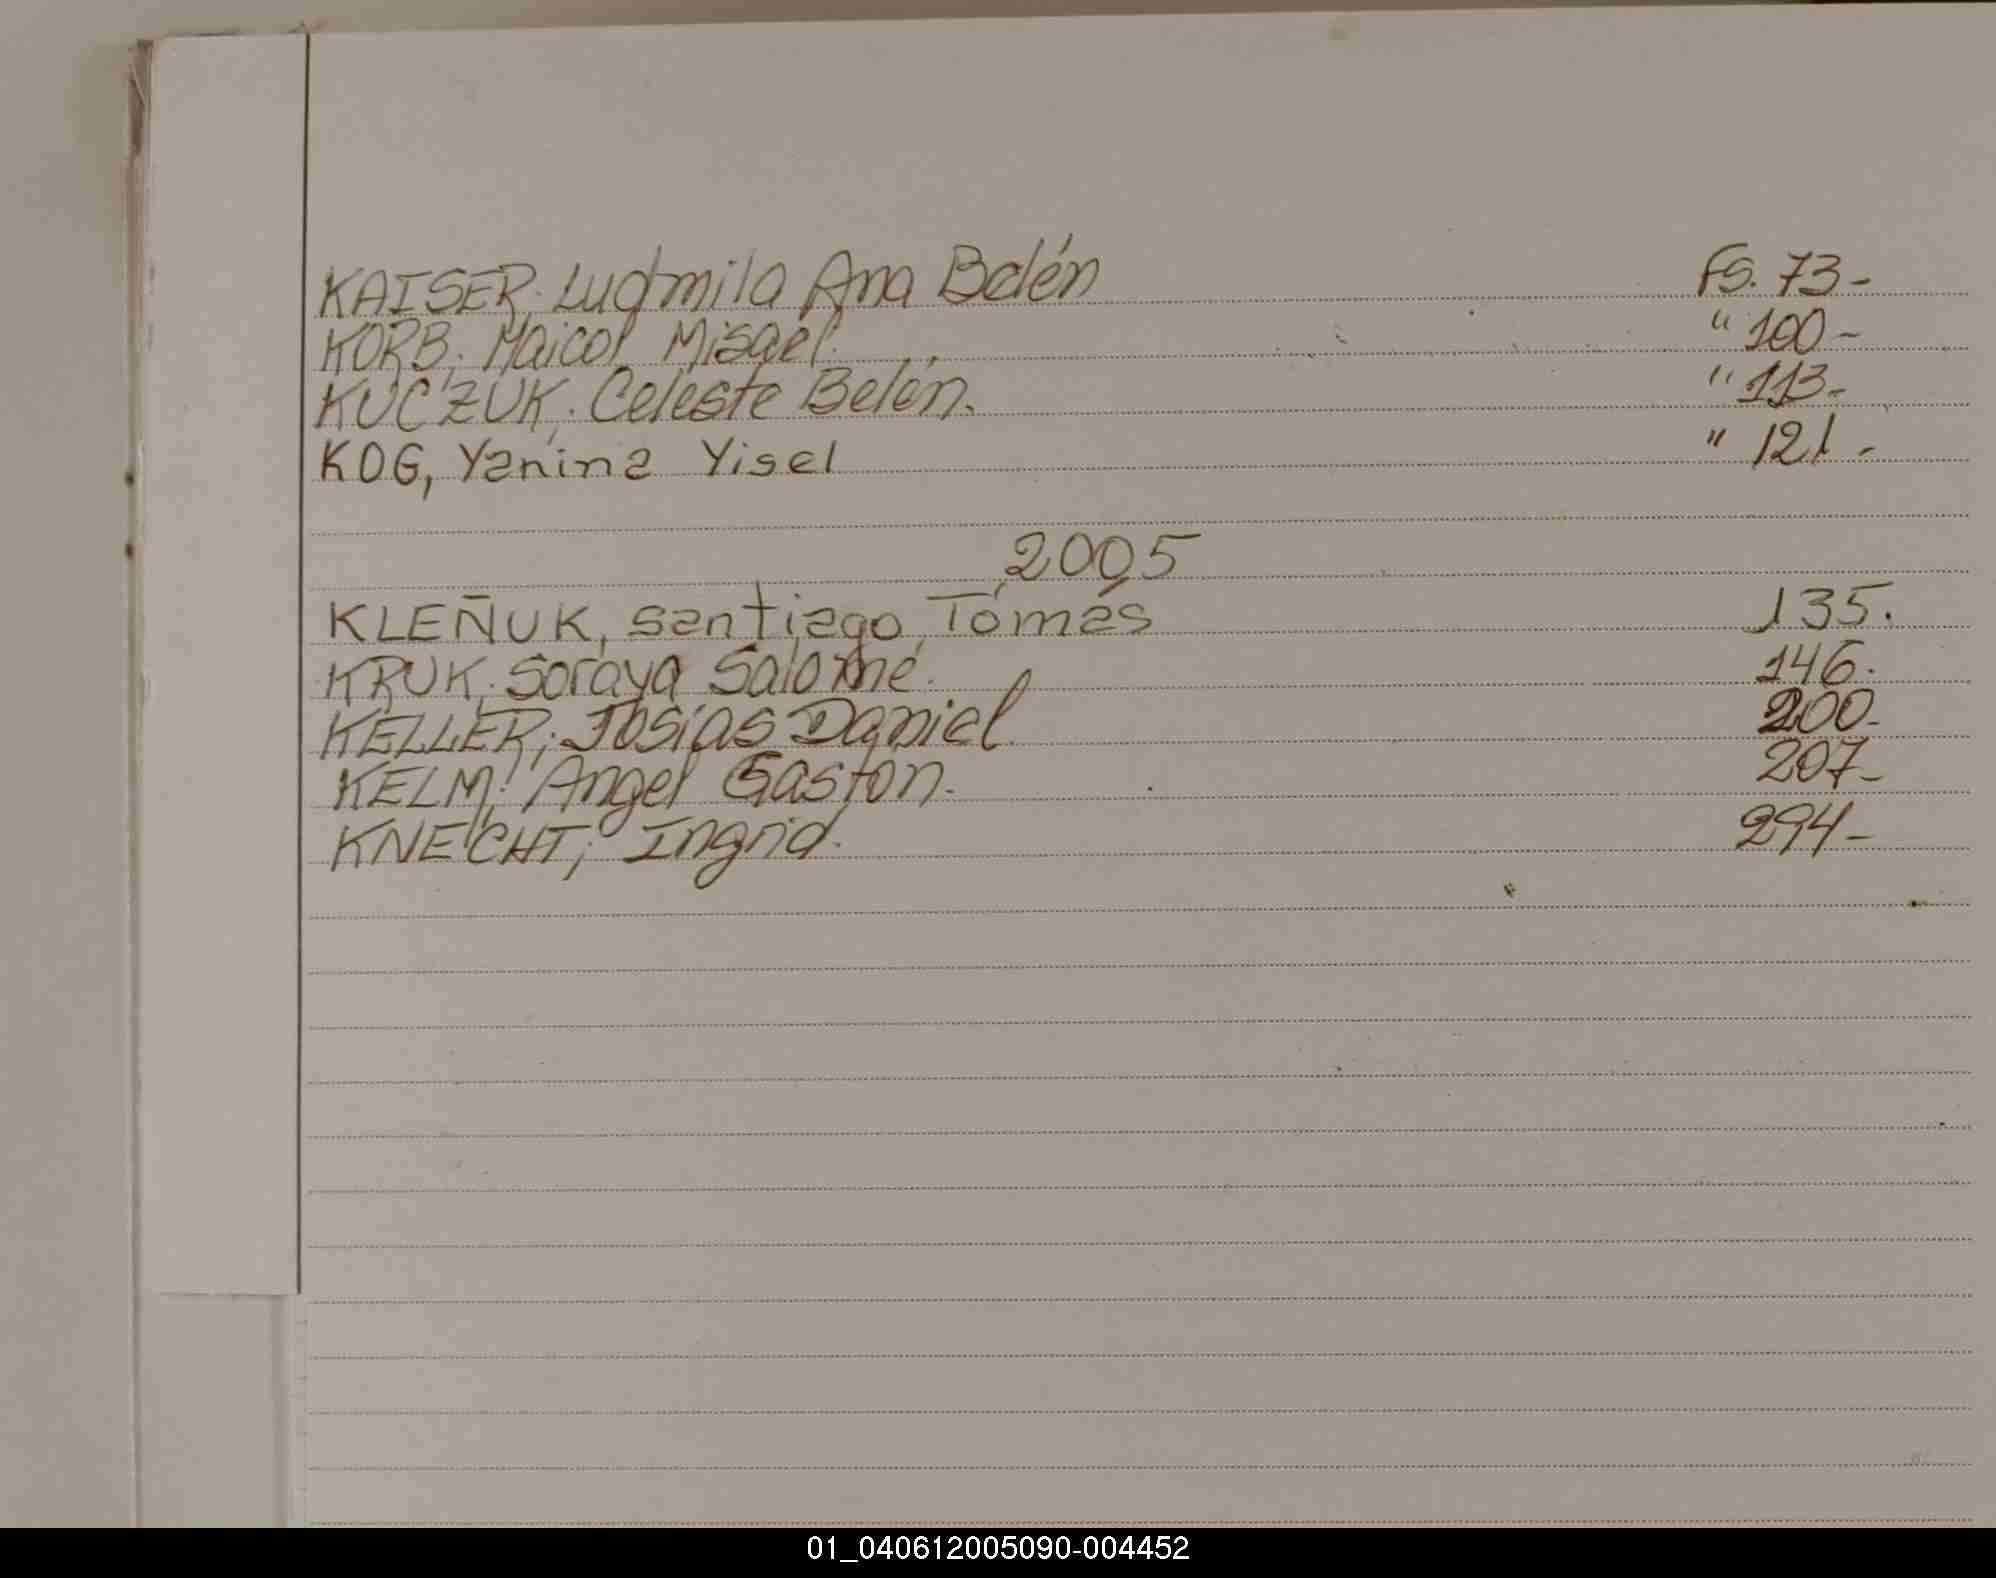 KAISER, Ludmila Ana Belén Fs. 73-
KORB, Maicol Misael. " 100-
KUCZUK, Celeste Belén. " 113-
KOG, Yanina Yisel " 121-
2005
KLEÑUK, Santiago Tomás 135.
KRUK, Soraya Salomé. 146.
KELLER, Josías Daniel. 200-
KELM, Angel Gaston. 207-
KNECHT, Ingrid. 294-
01_040612005090-004452